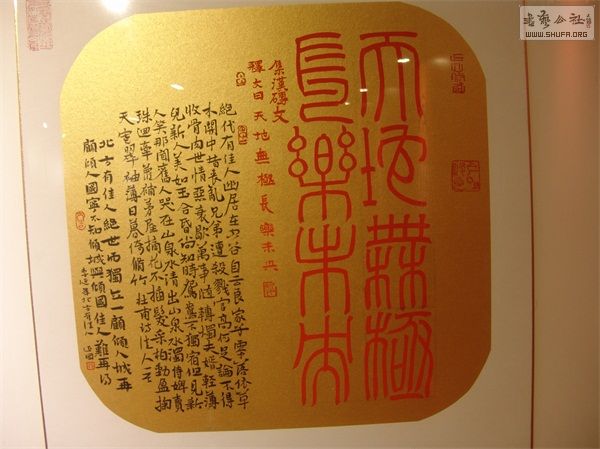 書藝公社
WWW.SHUFA.ORG
天地無極
長樂未央
集漢磚文
釋文曰天地無極長樂未央
絕代有佳人幽居在空谷自云良家子零落依草
木關中昔喪亂兄弟遭殺戮官高何足論不得
收骨肉世情惡衰歇萬事隨轉燭夫婿輕薄
兒新人美如玉合昏尚知時鴛鴦不獨宿但見新
人笑那聞舊人哭在山泉水清出山泉水濁侍婢賣
珠迴牽蘿補茅屋摘花不插髮采柏動盈掬
天寒翠袖薄日暮倚脩竹 杜甫詩佳人一首
北方有佳人絕世而獨立一顧傾人城再
顧傾人國寧不知傾城與傾國佳人難再得
李延年北方有佳人